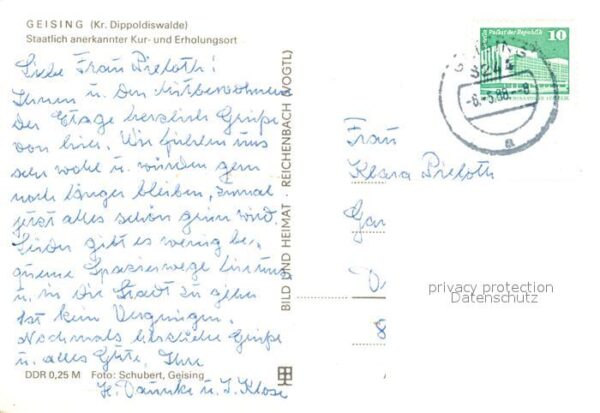 GEISING (Kr. Dippoldiswalde)
Staatlich anerkannter Kur- und Erholungsort
Liebe Frau Pieloth!
Ihnen u. den Mitbewohnern
der Etage herzlich Grüße
von hier. Wir fühlen uns
sehr wohl u. würden gern
noch länger bleiben, zumal
jetzt alles schön grün wird.
Leider gibt es wenig be-
queme Spazierwege hier
u. in die Stadt zu gehen
ist kein Vergnügen.
Nochmals herzliche Grüße
u. alles Gute, Ihre
H. u. I. Klose
DDR 0,25 M Foto: Schubert, Geising
BILD UND HEIMAT · REICHENBACH (VOGTL)
Palast der Republik 10
8244
-6.-5.88--8
a
Frau
Klara Pieloth
privacy protection
Datenschutz
8